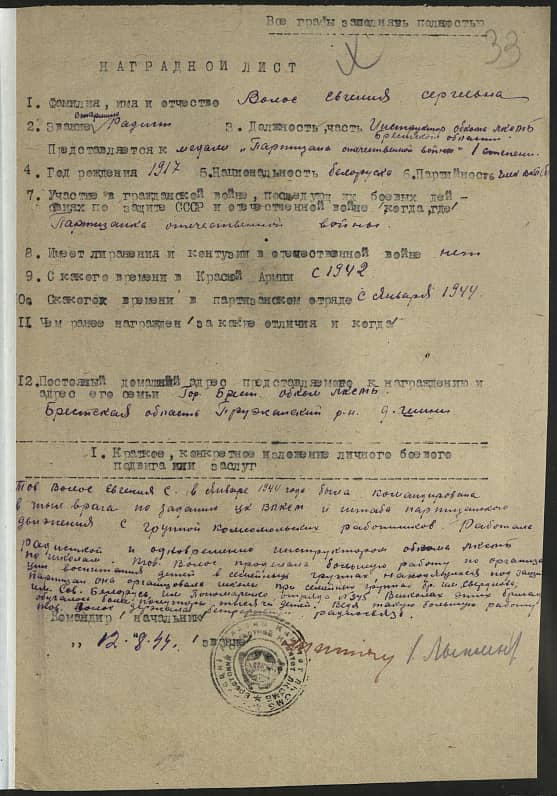 Все графы заполнять полностью
33
НАГРАДНОЙ ЛИСТ
1. Фамилия, имя и отчество Волос Евгения Сергеевна
старший
2. Звание Радист 3. Должность, часть Инструктор обкома ЛКСМБ
Брестской области.
Представляется к медали "Партизана отечественной войны" 1 степени.
4. Год рождения 1917 5. Национальность белоруска 6. Партийность член
7. Участие в гражданской войне, последующих боевых дей-
ствиях по защите СССР и отечественной войне /когда, где/
Партизанка отечественной войны.
8. Имеет ли ранения и контузии в отечественной войне нет
9. С какого времени в Красной Армии с 1942
10. Скакогох времени в партизанском отряде с января 1944.
11. Чем ранее награжден /за какие отличия и когда/
12. Постояный домашний адрес представляемого к награждению и
адрес его семьи Гор. Брест. обком ЛКСМБ.
Брестская область Пружанский р-н д.
I. Краткое, конкретное изложение личного боевого
подвига или заслуг
Тов Волос Евгения С. в январе 1944 года была командирована
в тыл врага по заданию ЦК ВЛКСМ и штаба партизанского
движения с группой комсомольских работников. Работала
радисткой и одновременно инструктором обкома ЛКСМБ
по школам. Тов. Волос проделала большую работу по организа
ции воспитания детей в семейных группах, находящихся под защи
партизан она организовала школы при семейных группах бр. им. Свердлова,
им. Сов. Белоруссии, им Пономаренко отряда №345 В школах этих бригад
обучалось более тысячи детей. Ведя такую большую работу
тов. Волос держала радиосвязь.
Командир /начальник
" 12 " 8. 44. /звание